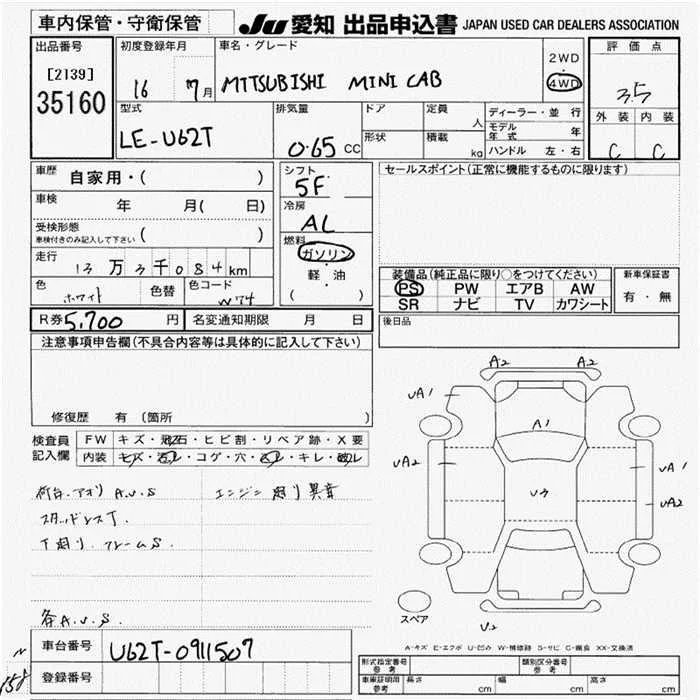 車内保管・守衛保管
JU 愛知 出品申込書 JAPAN USED CAR DEALERS ASSOCIATION
出品番号
[2139]
35160
初度登録年月
16 7月
車名・グレード
MITSUBISHI MINI CAB
2WD
・
4WD
評価点
3.5
外装 内装
C C
型式
LE-U62T
排気量
0.65 CC
ドア
形状
定員
人
積載
kg
ディーラー・並行
モデル年式 年
ハンドル 左・右
車歴 自家用・( )
車検 年 月( 日)
受検形態
車検付きのみ記入して下さい ( )
走行 13万3千084km
色 ホワイト 色替 色コード W74
シフト
5F
冷房
AL
燃料
ガソリン
・
軽油
( )
セールスポイント(正常に機能するものに限ります)
装備品(純正品に限り○をつけてください)
PS PW エアB AW
SR ナビ TV カワシート
新車保証書
有・無
R券 5,700 円 名変通知期限 月 日
後日品
注意事項申告欄(不具合内容等は具体的に記入して下さい)
修復歴 有 (箇所 )
検査員
記入欄
FW キズ・飛石・ヒビ割・リペア跡・X要
内装 キズ・汚レ・コゲ・穴・凹レ・キレ・破レ
荷台.アオリ A.U.S エンジン 走り異音
スタッドレスT.
下走り.フレームS.
各A.U.S.
A2 A2
UA1
A1
UA2
U3
UA1
UA2
U2
スペア
A-キズ E-エクボ U-凹み W-補修跡 S-サビ C-腐食 XX-交換済
車台番号 U62T-0911507
登録番号
形式指定番号 参考
類別区分番号 参考
車庫証明用 参考 長さ cm 幅 cm 高さ cm